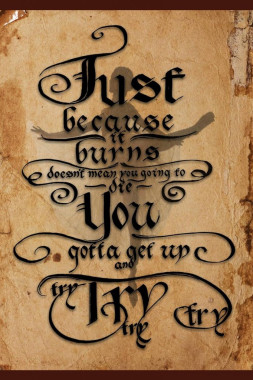 Just
because
it
burns
doesn't mean you going to
die
You
gotta get up
and
try Try try try